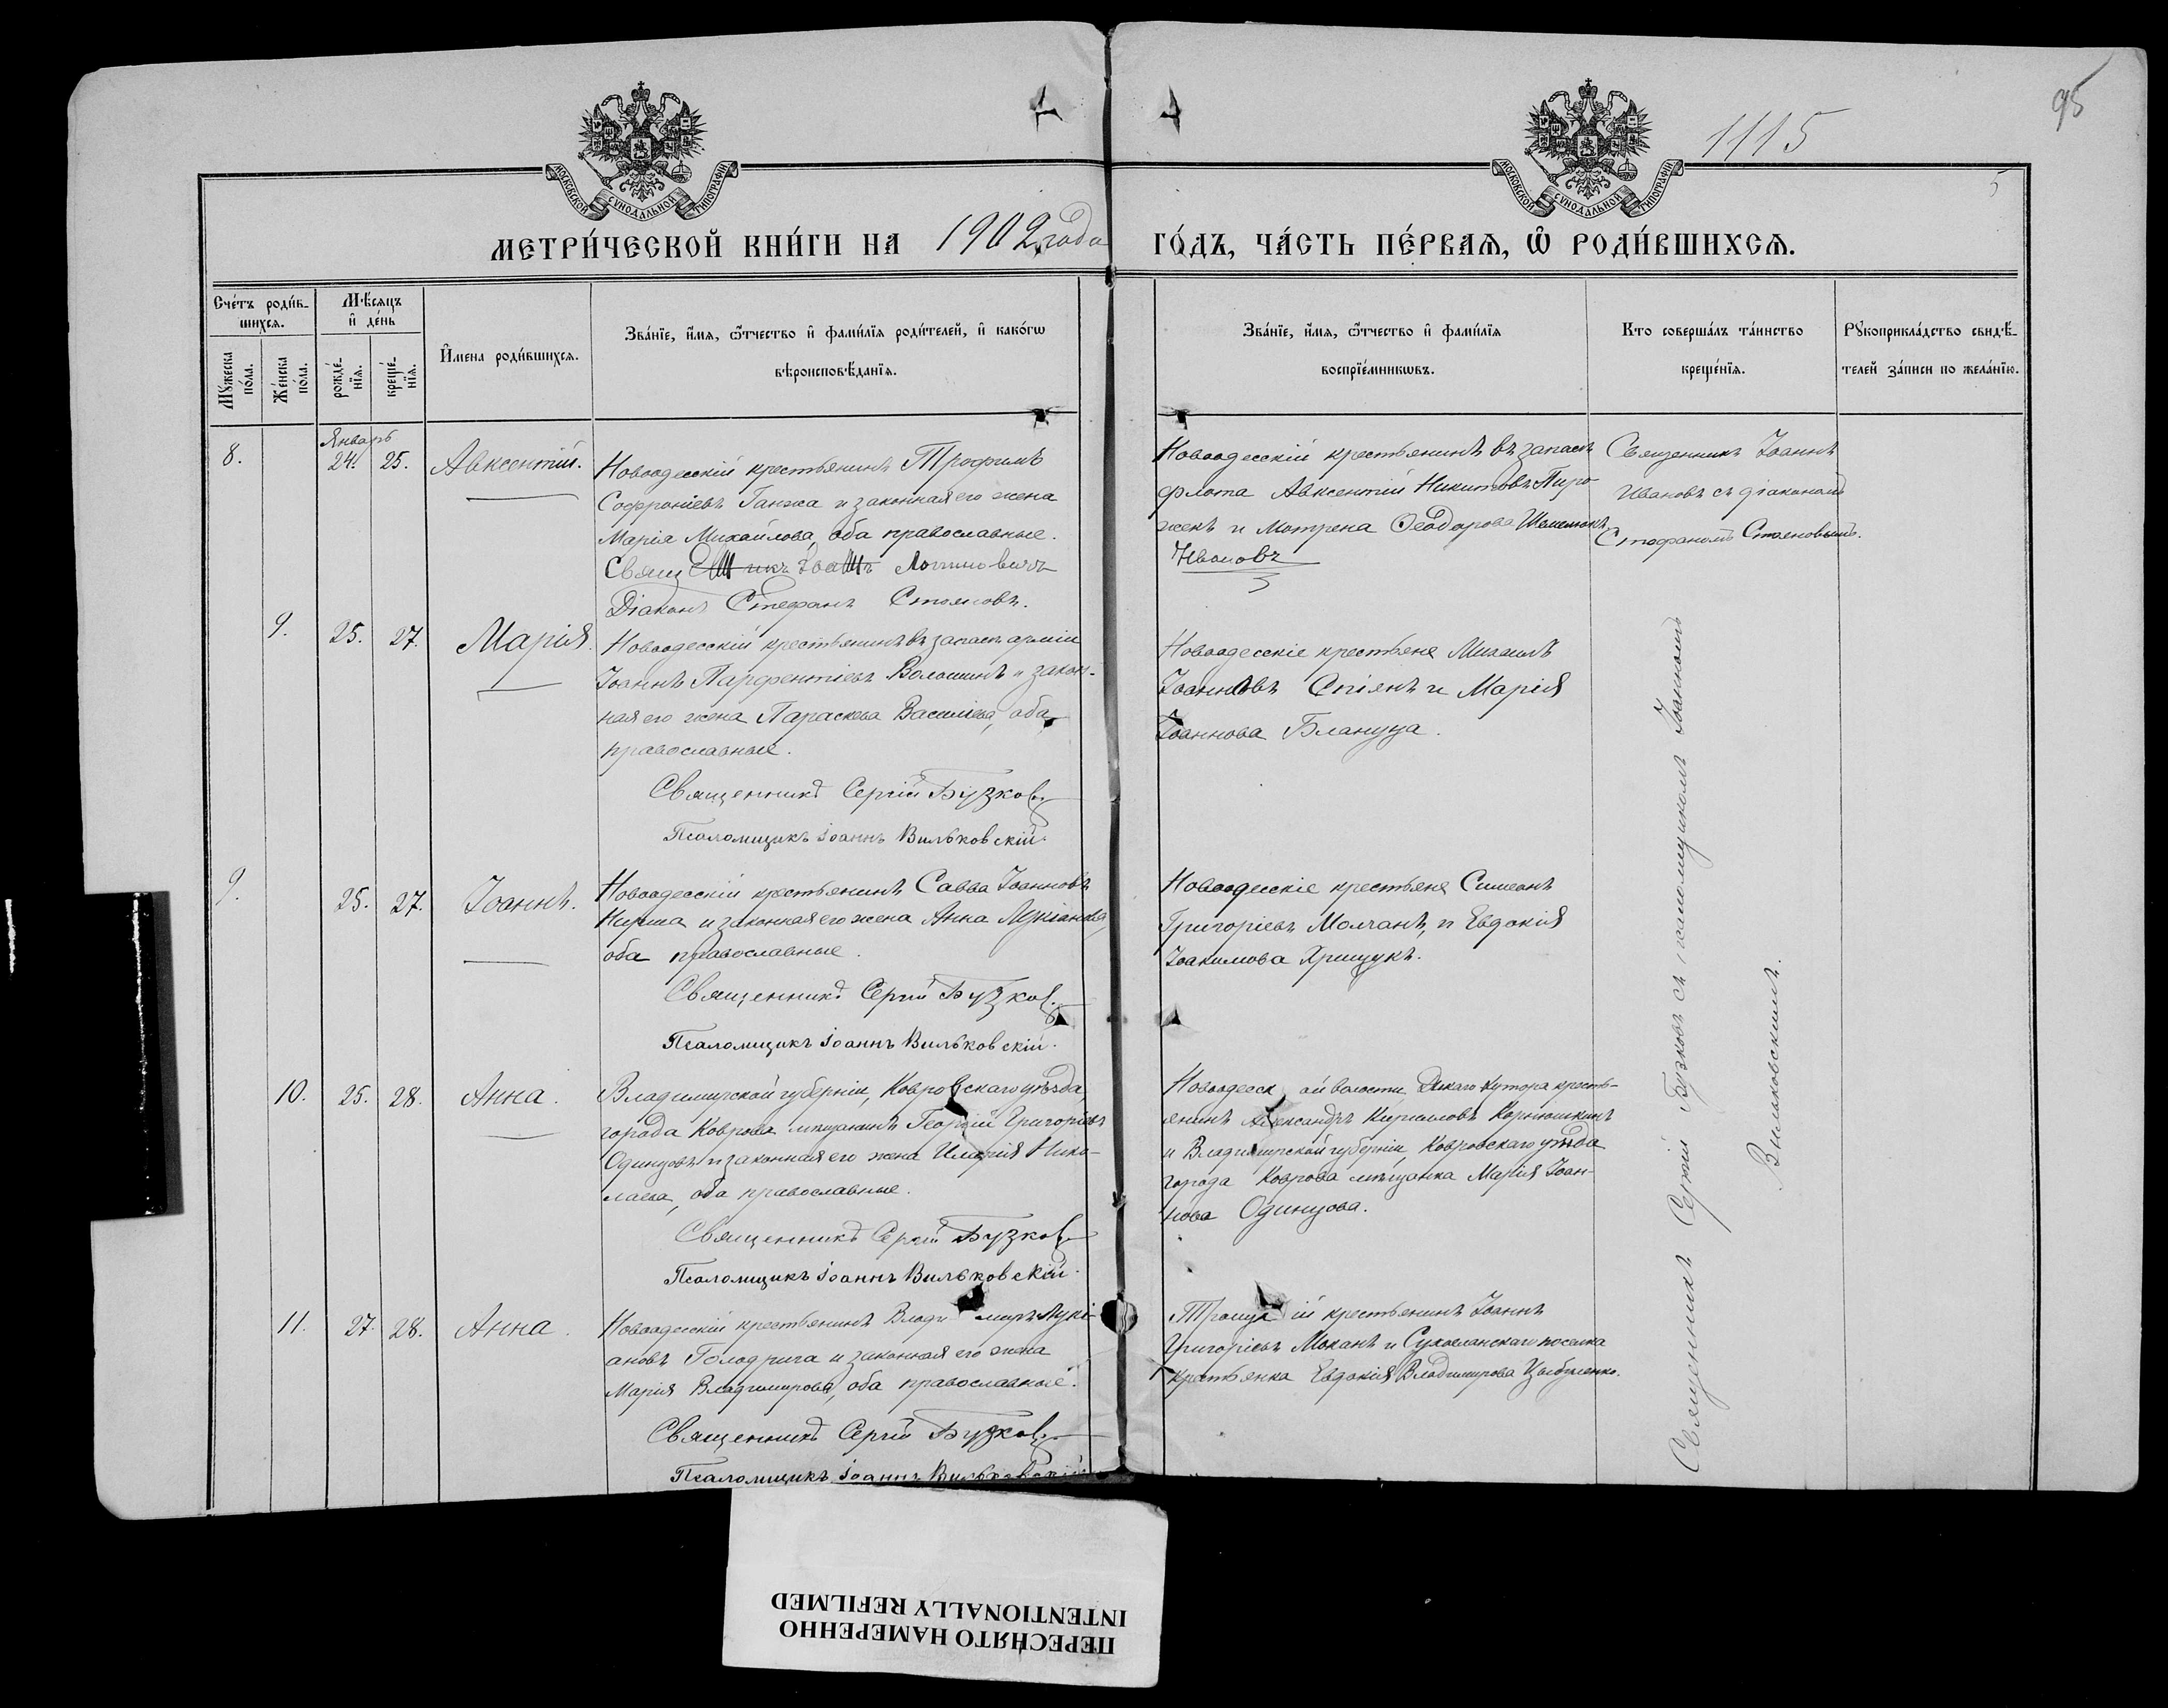 95
1115
5
МОСКОВСКОЙ СѴНОДАЛЬНОЙ ТИПОГРАФІИ
МОСКОВСКОЙ СѴНОДАЛЬНОЙ ТИПОГРАФІИ
МЕТРИ́ЧЕСКОЙ КНИ́ГИ НА 1902 года ГО́ДЪ, ЧА́СТЬ ПЕ́РВАѦ, Ѡ҆ РОДИ́ВШИХСѦ.
Сче́тъ роди́в-
шихсѧ.
Мѣ́сѧцъ
и҆ де́нь
Мꙋ́жеска
по́ла.
Же́нска
по́ла.
рожде́-
нїѧ.
креще́-
нїѧ.
И҆мена роди́вшихсѧ.
Зва́нїе, и҆́мѧ, ѻ҆́тчество и҆ фами́лїѧ роди́телей, и҆ како́гѡ
вѣроисповѣ́данїѧ.
Зва́нїе, и҆́мѧ, ѻ҆́тчество и҆ фами́лїѧ
воспрїе́мникѡвъ.
Кто соверша́лъ та́инство
креще́нїѧ.
Рꙋкоприкла́дство свидѣ́-
телей за́писи по жела́нїю.
Январь
8. 24. 25. Авксентій.
Новоодесскій крестьянинъ Трофимъ
Софроніевъ Ганжа и законная его жена
Марія Михайлова, оба православные.
Діаконъ Стефанъ Стояновъ.
Новоодесскій крестьянинъ въ запасѣ
флота Авксентій Никитовъ Пиро-
жекъ и Мотрена Ѳеодорова
Ивановъ
Священникъ Іоаннъ
Ивановъ съ діакономъ
Стефаномъ Стояновымъ.
9. 25. 27. Марія.
Новоодесскій крестьянинъ въ запасѣ арміи
Іоаннъ Парфентіевъ Волошинъ и закон-
ная его жена Параскева Василіева, оба
православные.
Священникъ Сергій Бузковъ
Псаломщикъ Іоаннъ Вильковскій.
Новоодесскіе крестьяне Михаилъ
Іоанновъ Стіянъ и Марія
Іоаннова Блануца.
9. 25. 27. Іоаннъ.
Новоодесскій крестьянинъ Савва Іоанновъ
Кирша и законная его жена Анна Лукіанова,
оба православные.
Священникъ Сергій Бузковъ
Псаломщикъ Іоаннъ Вильковскій.
Новоодесскіе крестьяне Симеонъ
Григоріевъ Молчанъ, и Евдокія
Іоакимова Хрищукъ.
10. 25. 28. Анна.
Владимирской губерніи, Ковровскаго уѣзда,
города Коврова мѣщанинъ Георгій Григоріевъ
Одинцовъ и законная его жена Марія Нико-
лаева, оба православные.
Священникъ Сергій Бузковъ
Псаломщикъ Іоаннъ Вильковскій.
Новоодесской волости, Дикаго хутора кресть-
янинъ Александръ Кирилловъ Корнюшкинъ
и Владимирской губерніи, Ковровскаго уѣзда
города Коврова мѣщанка Марія Іоан-
нова Одинцова.
11. 27. 28. Анна.
Новоодесскій крестьянинъ Владимиръ Лукі-
ановъ Голодрига и законная его жена
Марія Владимирова, оба православные.
Священникъ Сергій Бузковъ
Псаломщикъ Іоаннъ Вильковскій
Троицкій крестьянинъ Іоаннъ
Григоріевъ Моканъ и Сухоеланскаго поселка
крестьянка Евдокія Владимирова Цыбуленко.
Священникъ Сергій Бузковъ съ псаломщикомъ Іоанномъ
Вильковскимъ.
ПЕРЕСНЯТО НАМЕРЕННО
INTENTIONALLY REFILMED